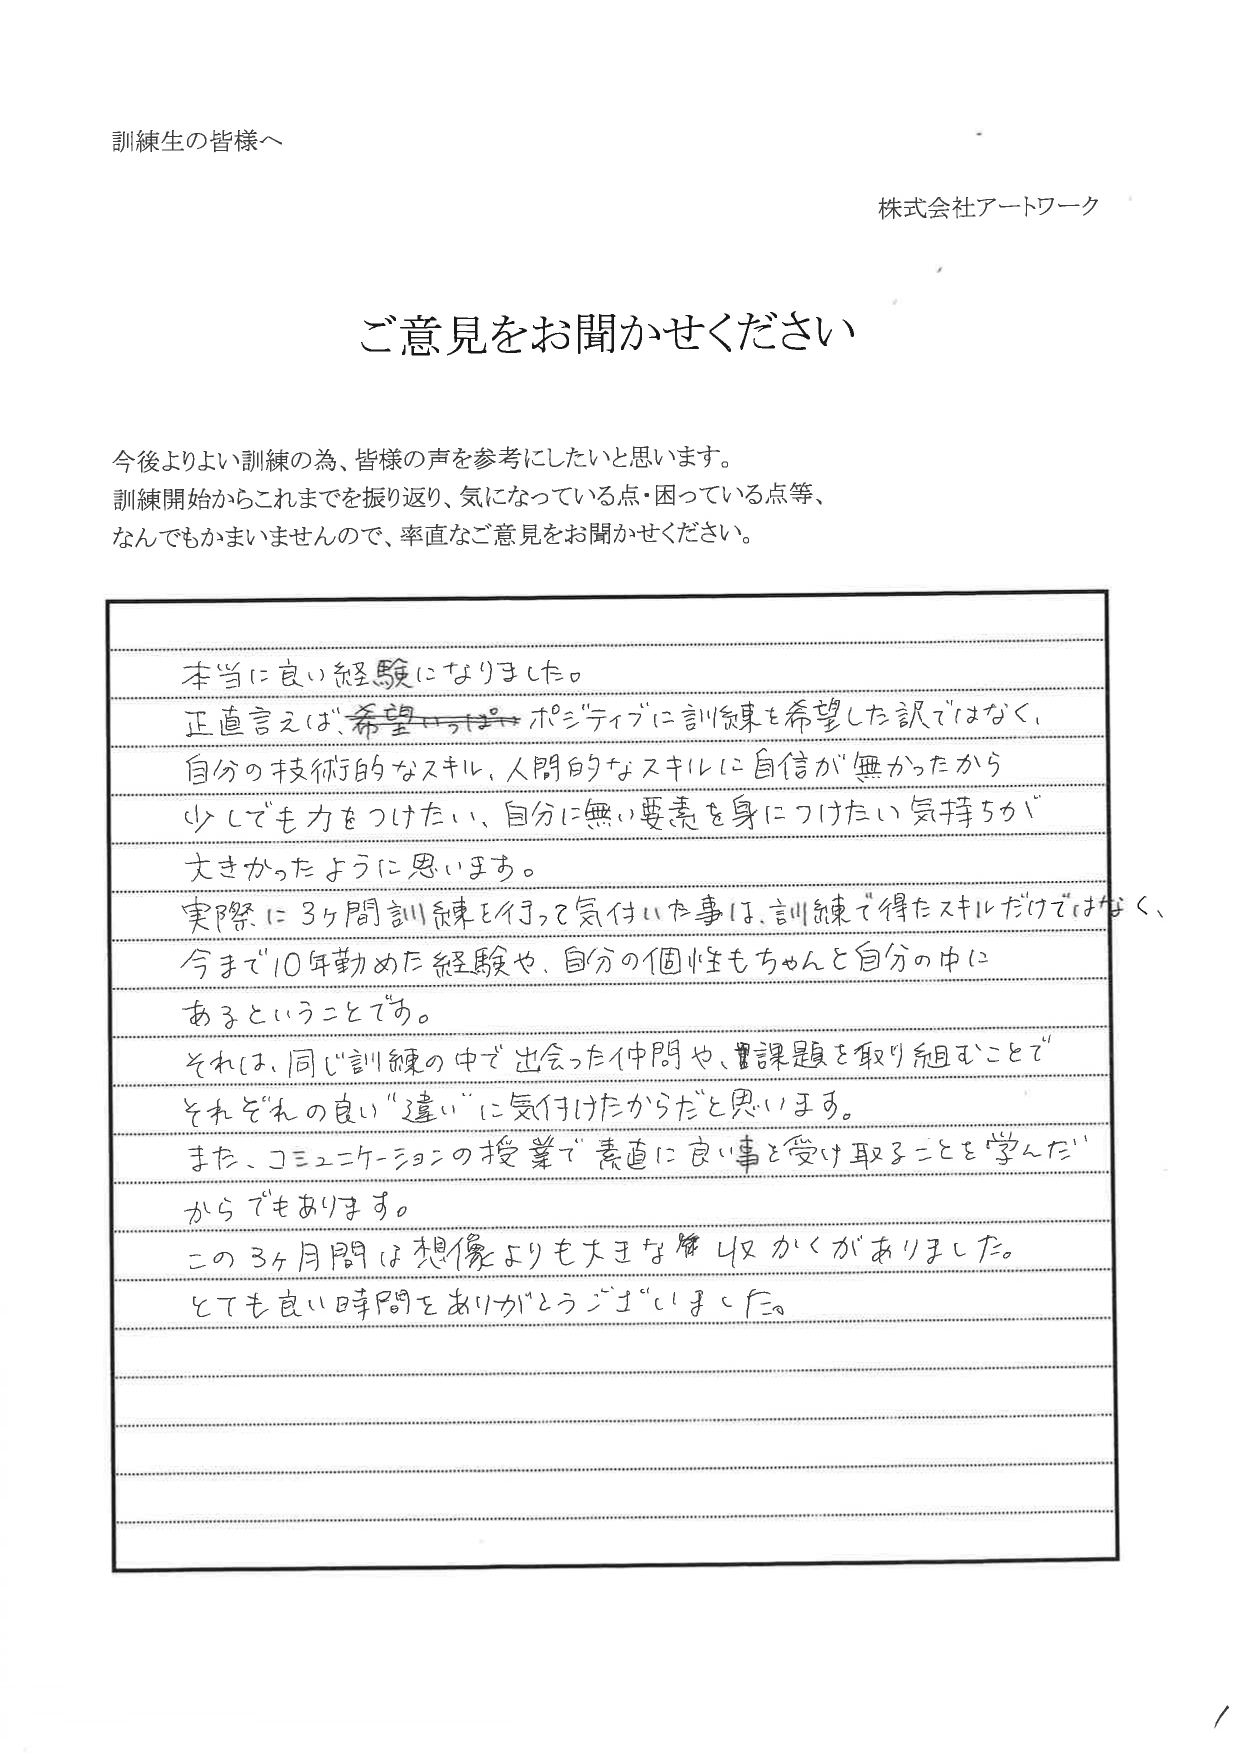 訓練生の皆様へ
株式会社アートワーク
ご意見をお聞かせください
今後よりよい訓練の為、皆様の声を参考にしたいと思います。
訓練開始からこれまでを振り返り、気になっている点・困っている点等、
なんでもかまいませんので、率直なご意見をお聞かせください。
本当に良い経験になりました。
正直言えば、希望いっぱい ポジティブに訓練を希望した訳ではなく、
自分の技術的なスキル、人間的なスキルに自信が無かったから
少しでも力をつけたい、自分に無い要素を身につけたい気持ちが
大きかったように思います。
実際に3ヶ間訓練を行って気付いた事は、訓練で得たスキルだけではなく、
今まで10年勤めた経験や、自分の個性もちゃんと自分の中に
あるということです。
それは、同じ訓練の中で出会った仲間や、課題を取り組むことで
それぞれの良い"違い"に気付けたからだと思います。
また、コミュニケーションの授業で素直に良い事を受け取ることを学んだ
からでもあります。
この3ヶ月間は想像よりも大きな収かくがありました。
とても良い時間をありがとうございました。